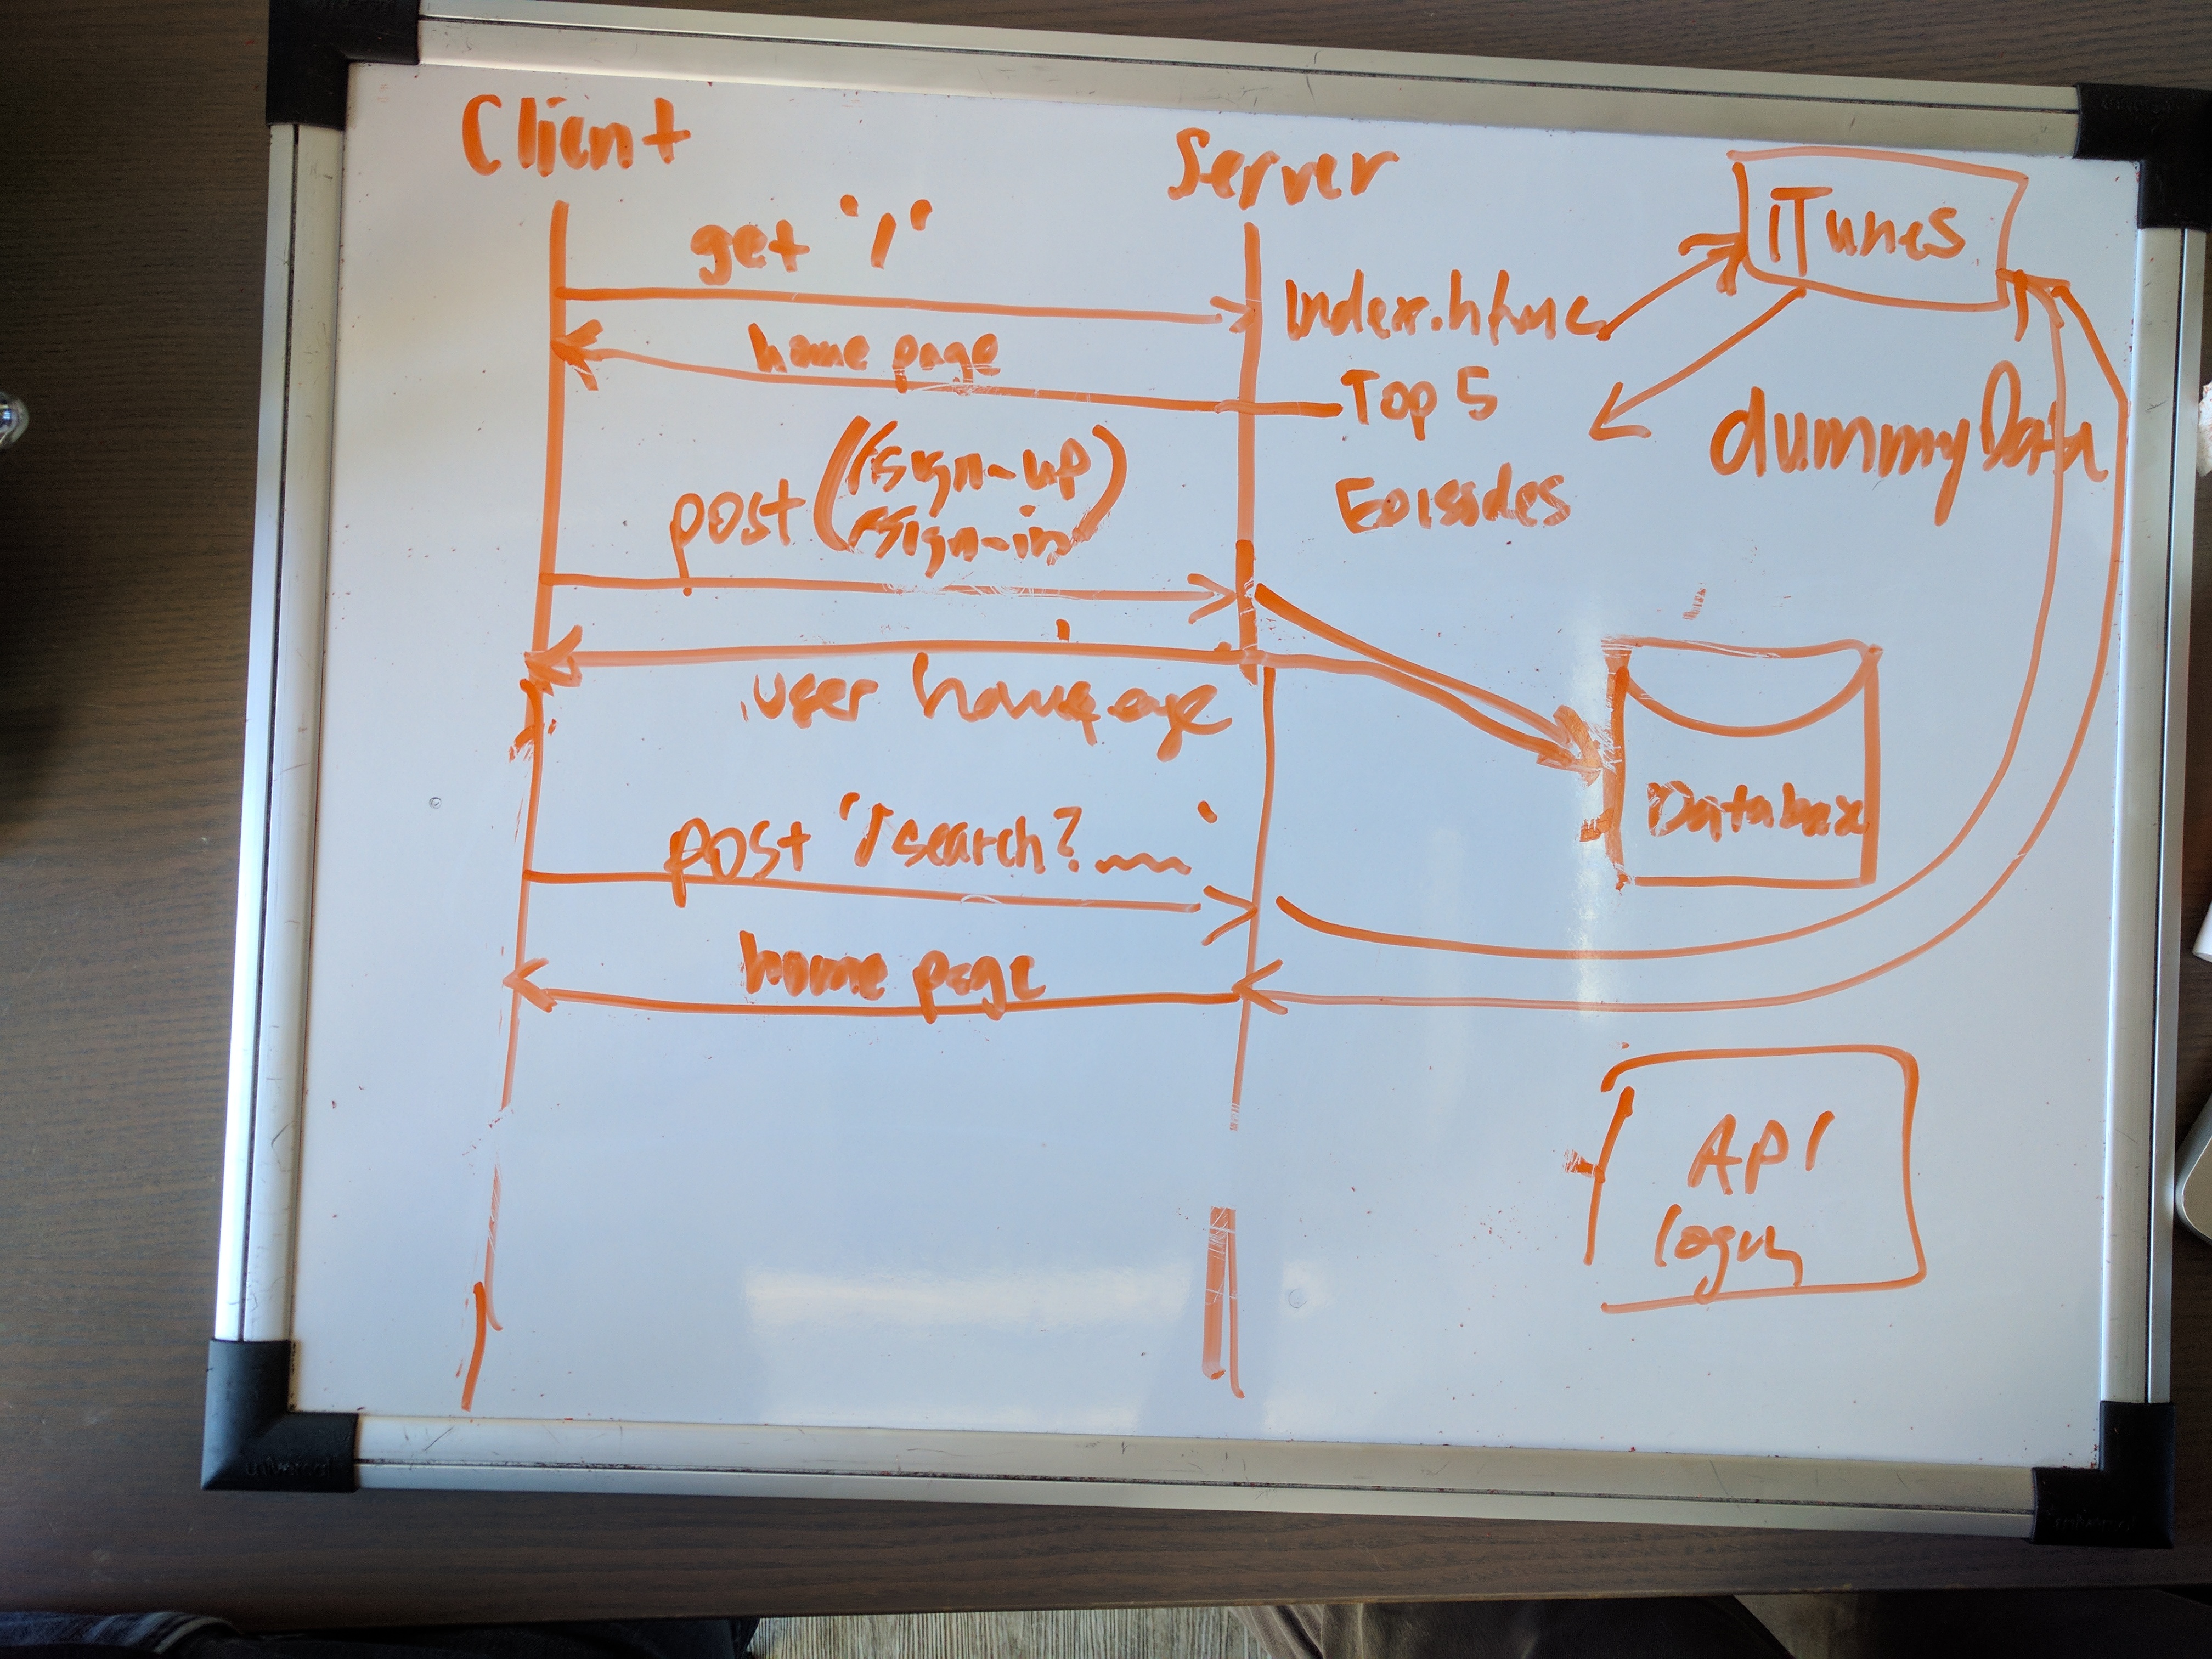 Client
Server
iTunes
get '/'
Index.html
home page
Top 5
Episodes
dummyData
post (/sign-up
/sign-in)
user homepage
Database
post '/search?
'
home page
API
login